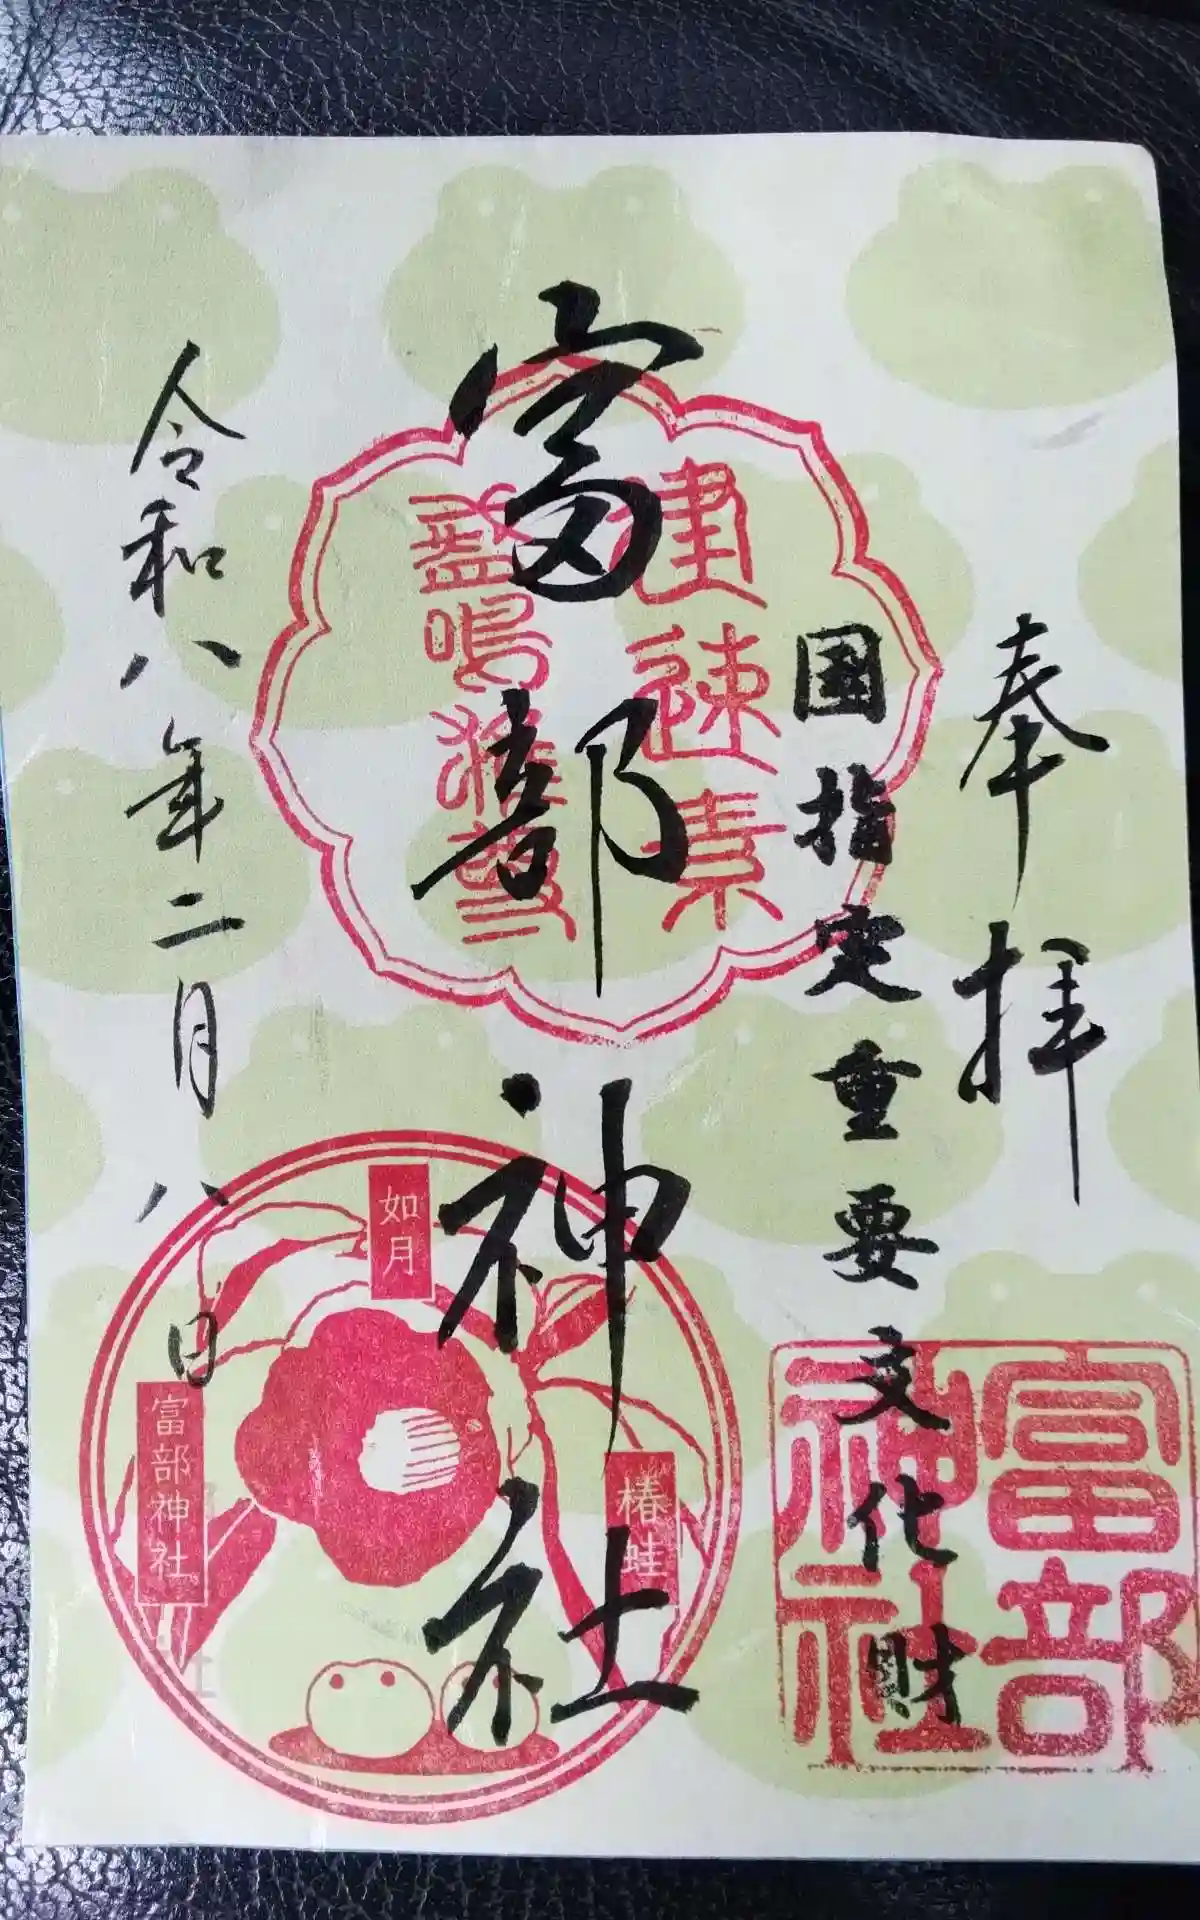 奉拝
国指定重要文化財
富部神社
建速素
盞嗚雅尊
令和八年二月八日
如月
椿蛙
富部神社
富部
神社